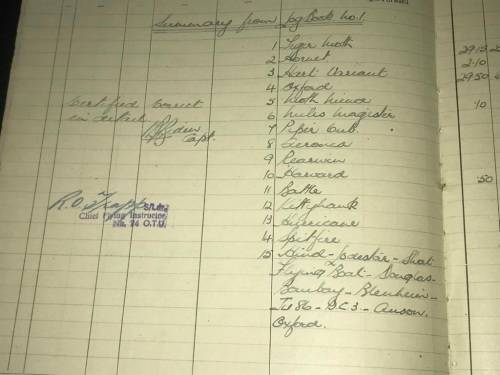 Summary from Log Book No. 1.
1 Tiger Moth
2 Hornet
3 Hart Variant
4 Oxford
5 Moth Minor
6 Miles Magister
7 Piper Cub.
8 Aeronca
9 Rearwin
10 Harvard
11 Battle
12 Kittyhawk
13 Hurricane
14 Spitfire
15 Hind - Lodestar - Short
Flying Boat - Douglas -
Bombay - Blenheim -
Ju 86 - DC3 - Anson.
Oxford.
Certified correct
in detail
Capt.
R.O. Trapp
S/Ldr.
Chief Flying Instructor
No. 74 O.T.U.
2.10
10
50